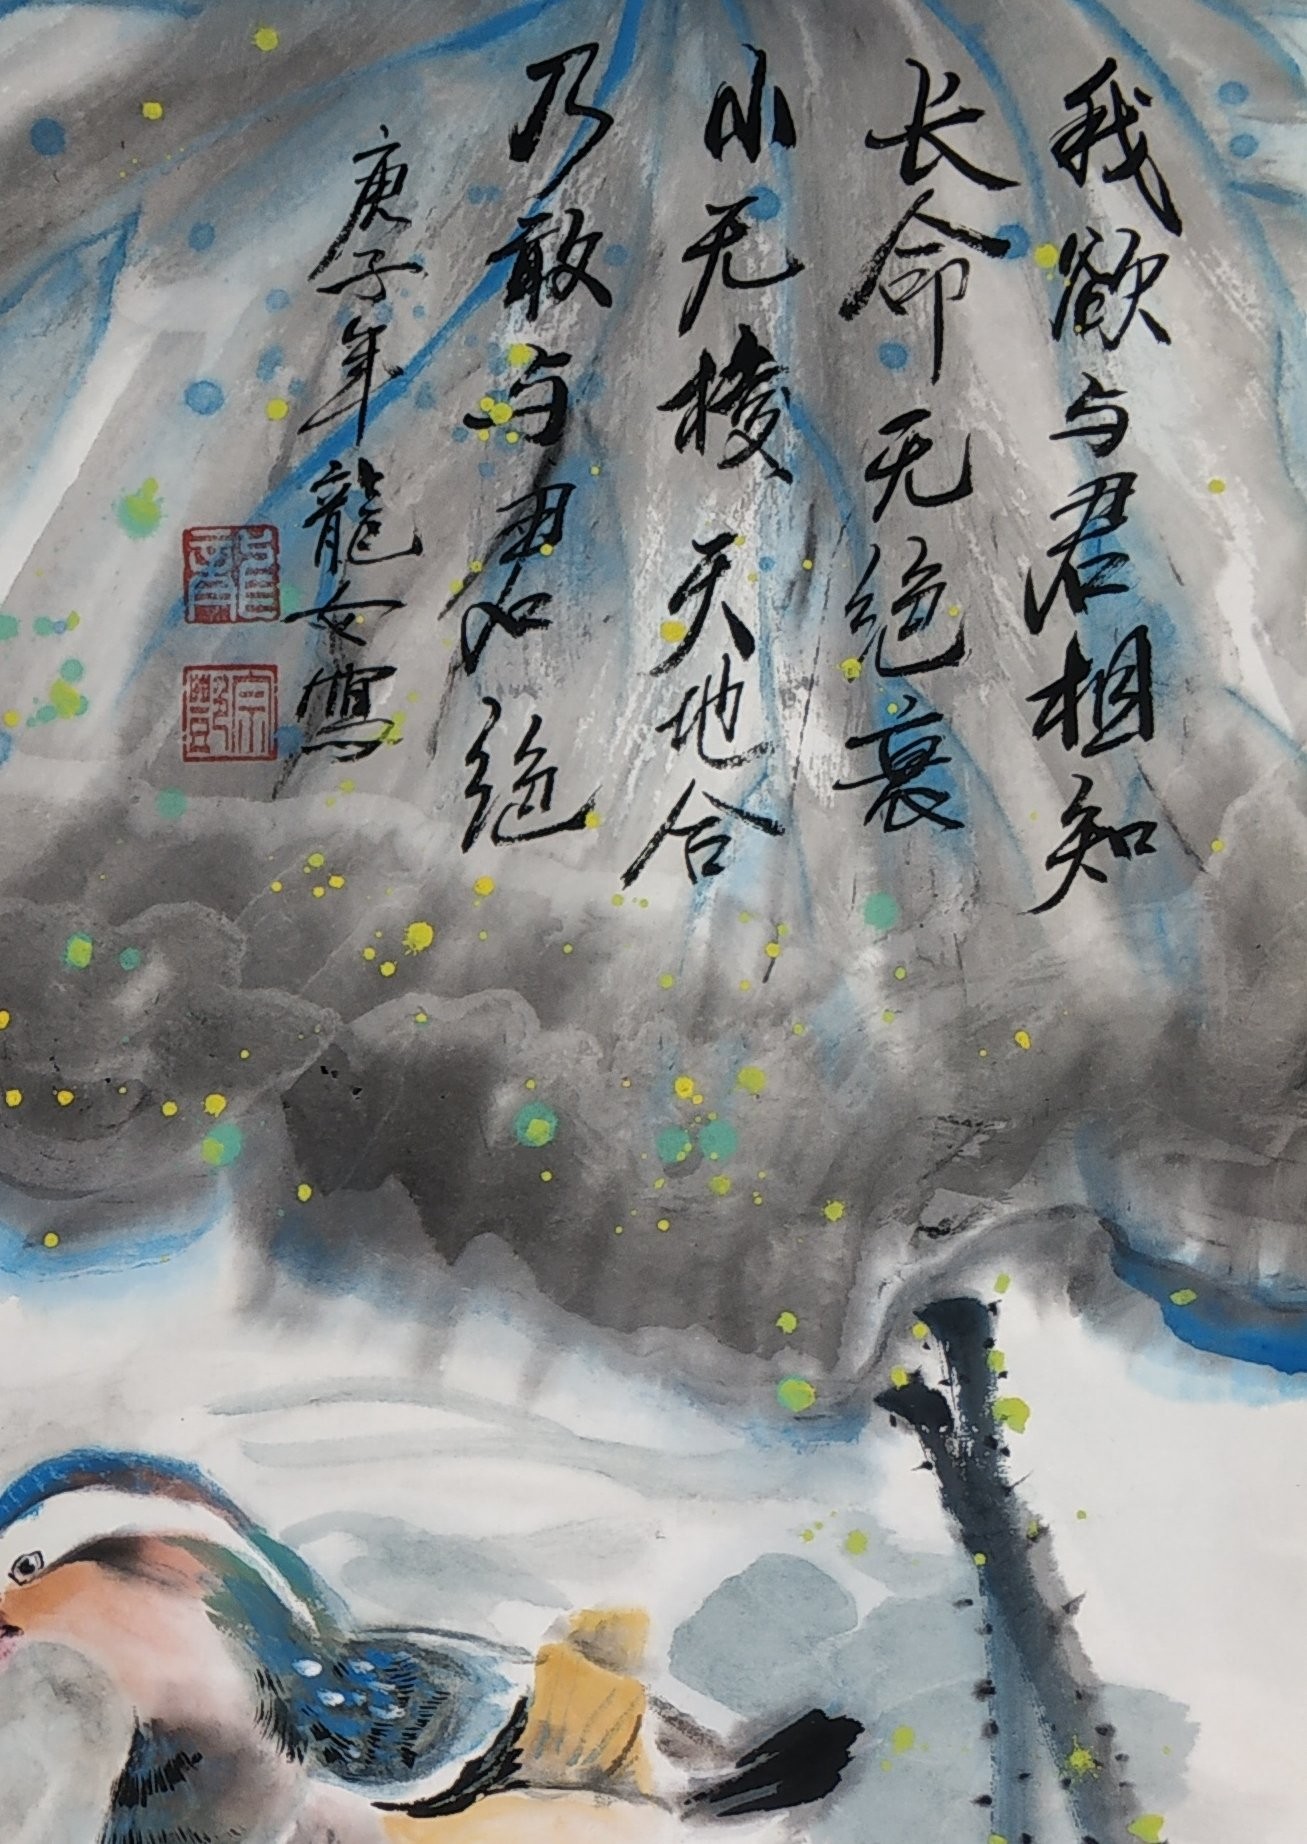 我欲与君相知
长命无绝衰
山无棱天地合
乃敢与君绝
庚子年龍女寫
龍